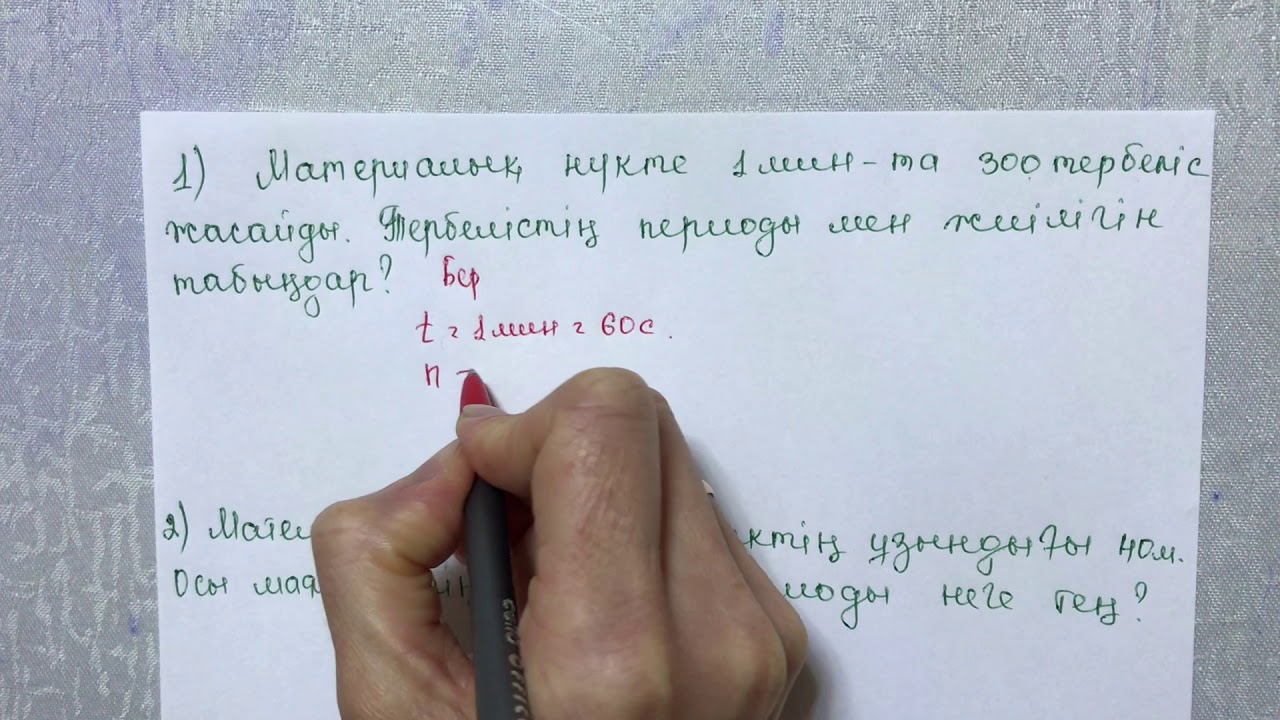 1) Материалық нүкте 1 мин-та 300 тербеліс
жасайды. Тербелістің периоды мен жиілігін
табыңдар?
Бер
t = 1 мин = 60 с.
n
2)
ұзындығы 40 м.
Осы неге тең?